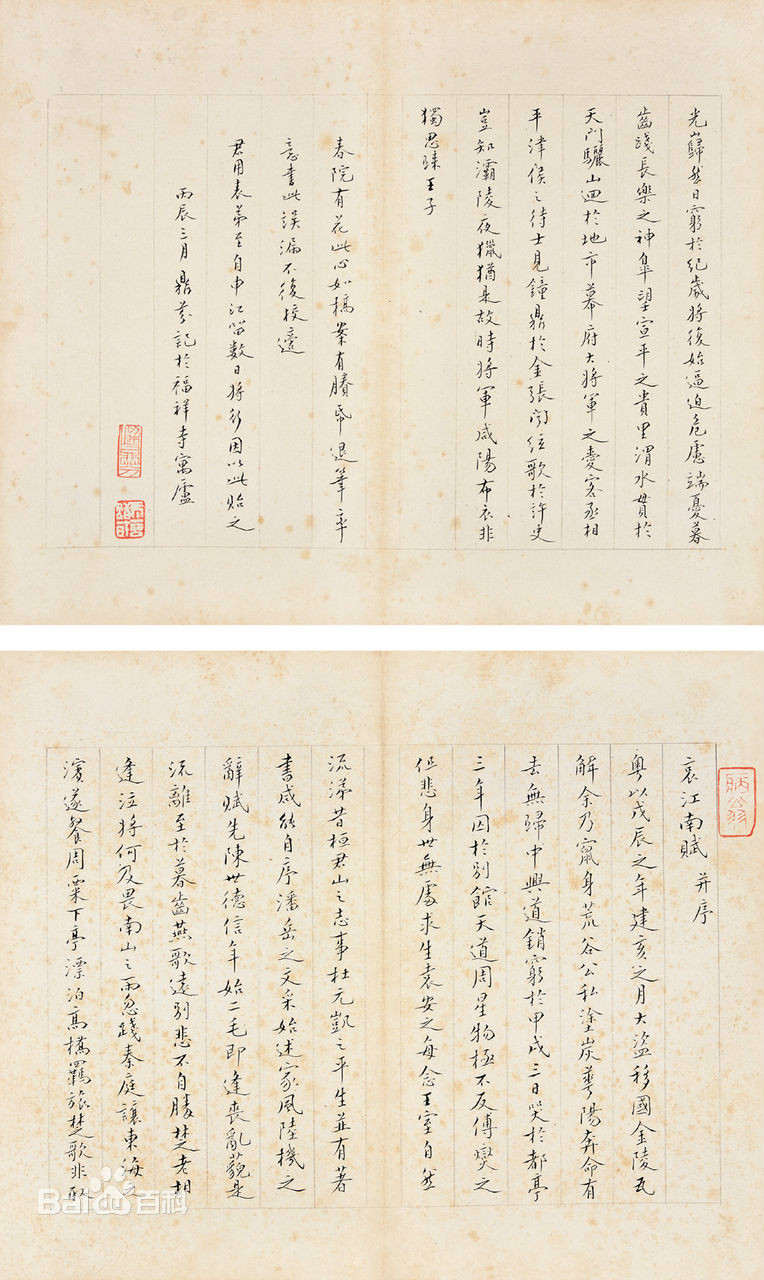 光巋歸然日窮於紀歲將復始逼迫危慮端憂暮
齒踐長樂之神皋望宣平之貴里渭水貫於
天門驪山迴於地市幕府大將軍之愛客丞相
平津侯之待士見鐘鼎於金張聞絃歌於許史
豈知灞陵夜獵猶是故時將軍咸陽布衣非
獨思歸王子
春院有花此心如槁案有賸帋退筆率
意書此誤漏不復校邊
君用表弟至自申江留數日將行因以此貽之
丙辰三月鼎芬記於福祥寺寓廬
哀江南賦 并序
粵以戊辰之年建亥之月大盜移國金陵瓦
解余乃竄身荒谷公私塗炭華陽奔命有
去無歸中興道銷窮於甲戌三日哭於都亭
三年囚於別館天道周星物極不反傅燮之
但悲身世無處求生袁安之每念王室自然
流涕昔桓君山之志事杜元凱之平生並有著
書咸能自序潘岳之文采始述家風陸機之
辭賦先陳世德信年始二毛即逢喪亂藐是
流離至於暮齒燕歌遠別悲不自勝楚老相
逢泣將何及畏南山之雨忽踐秦庭讓東海之
濱遂餐周粟下亭漂泊高橋羈旅楚歌非取
病翁
Baidu百科